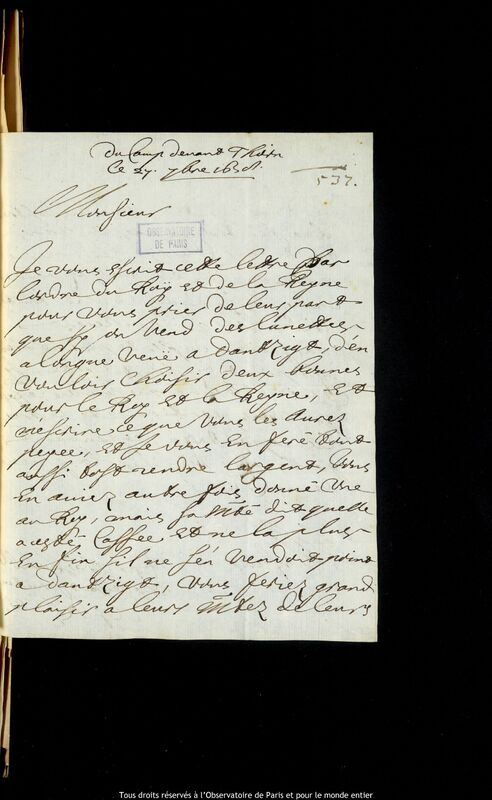 Du Camp devant Thorn
Ce 27. 7bre 1658.
537.
Monsieur
OBSERVATOIRE
DE PARIS
Je vous escrit cette lettre par
l'ordre du Roy et de la Reyne
pour vous prier de leur part
que sy on vend des lunettes
a longue veue a dantzigt, d'en
vouloir choisir deux bonnes
pour le Roy et la Reyne, Et
m'escrire ce que vous les aurez
peyee, Et je vous en feré tout
aussi tost rendre largent, Vous
En aviez autre fois donné une
au Roy, mais sa Mté dit quelle
a esté Cassee Et ne la plus
En fin s'il ne s'en vendoit point
a dantzigt, vous feriez grand
plaisir a leurs Mtez de leurs
Tous droits réservés à l'Observatoire de Paris et pour le monde entier